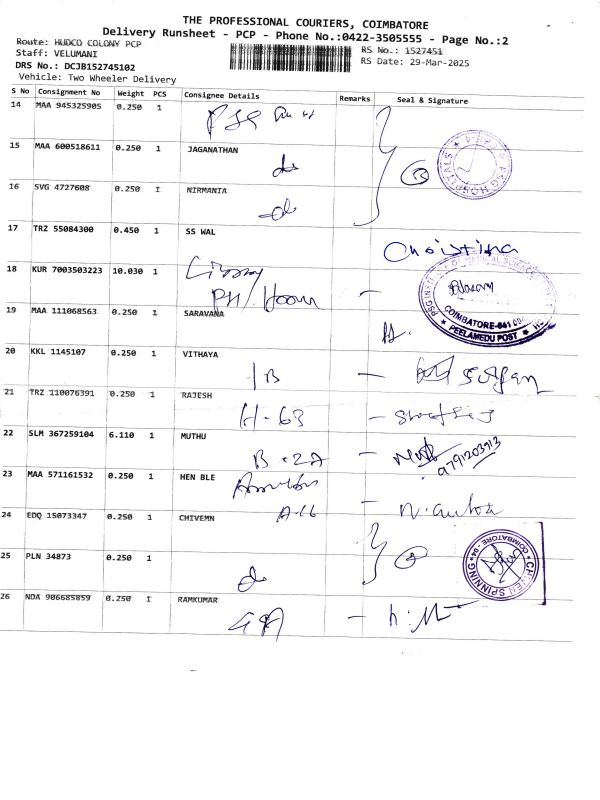 THE PROFESSIONAL COURIERS, COIMBATORE
Delivery Runsheet - PCP - Phone No.:0422-3505555 - Page No.:2
Route: HUDCO COLONY PCP
RS No.: 1527451
Staff: VELUMANI
RS Date: 29-Mar-2025
DRS No.: DCJB152745102
Vehicle: Two Wheeler Delivery
S No Consignment No Weight PCS Consignee Details Remarks Seal & Signature
14 MAA 945325905 0.250 1
15 MAA 600518611 0.250 1 JAGANATHAN
do
PSG HOSPITALS
16 SVG 4727608 0.250 1 NIRMANIA
do
17 TRZ 55084300 0.450 1 SS WAL
18 KUR 7003503223 10.030 1
COIMBATORE-641 004
PEELAMEDU POST
19 MAA 111068563 0.250 1 SARAVANA
20 KKL 1145107 0.250 1 VITHAYA
1B
21 TRZ 110076391 0.250 1 RAJESH
H-63
22 SLM 367259104 6.110 1 MUTHU
B-2A
9791203913
23 MAA 571161532 0.250 1 HEN BLE
24 EDQ 15073347 0.250 1 CHIVEMN
A-16
25 PLN 34873 0.250 1
do
SPINNING
COIMBATORE - 04
26 NDA 906685859 0.250 1 RAMKUMAR